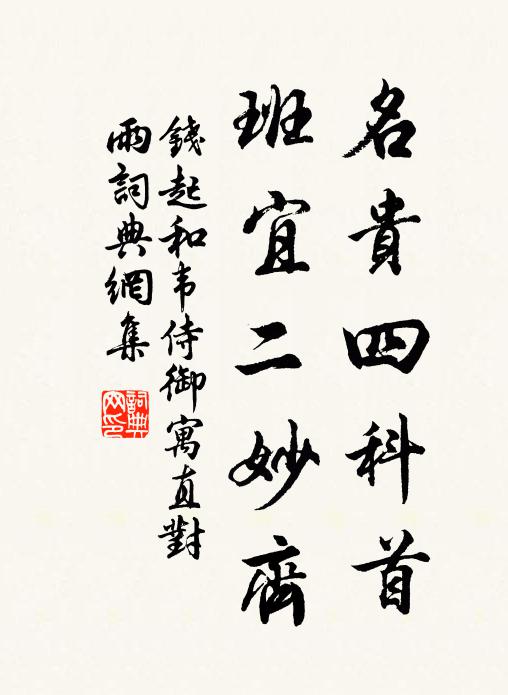 名貴四科首
班宜二妙齊
錢起和韦侍御寓直對
雨詞典網集
詞典
网印